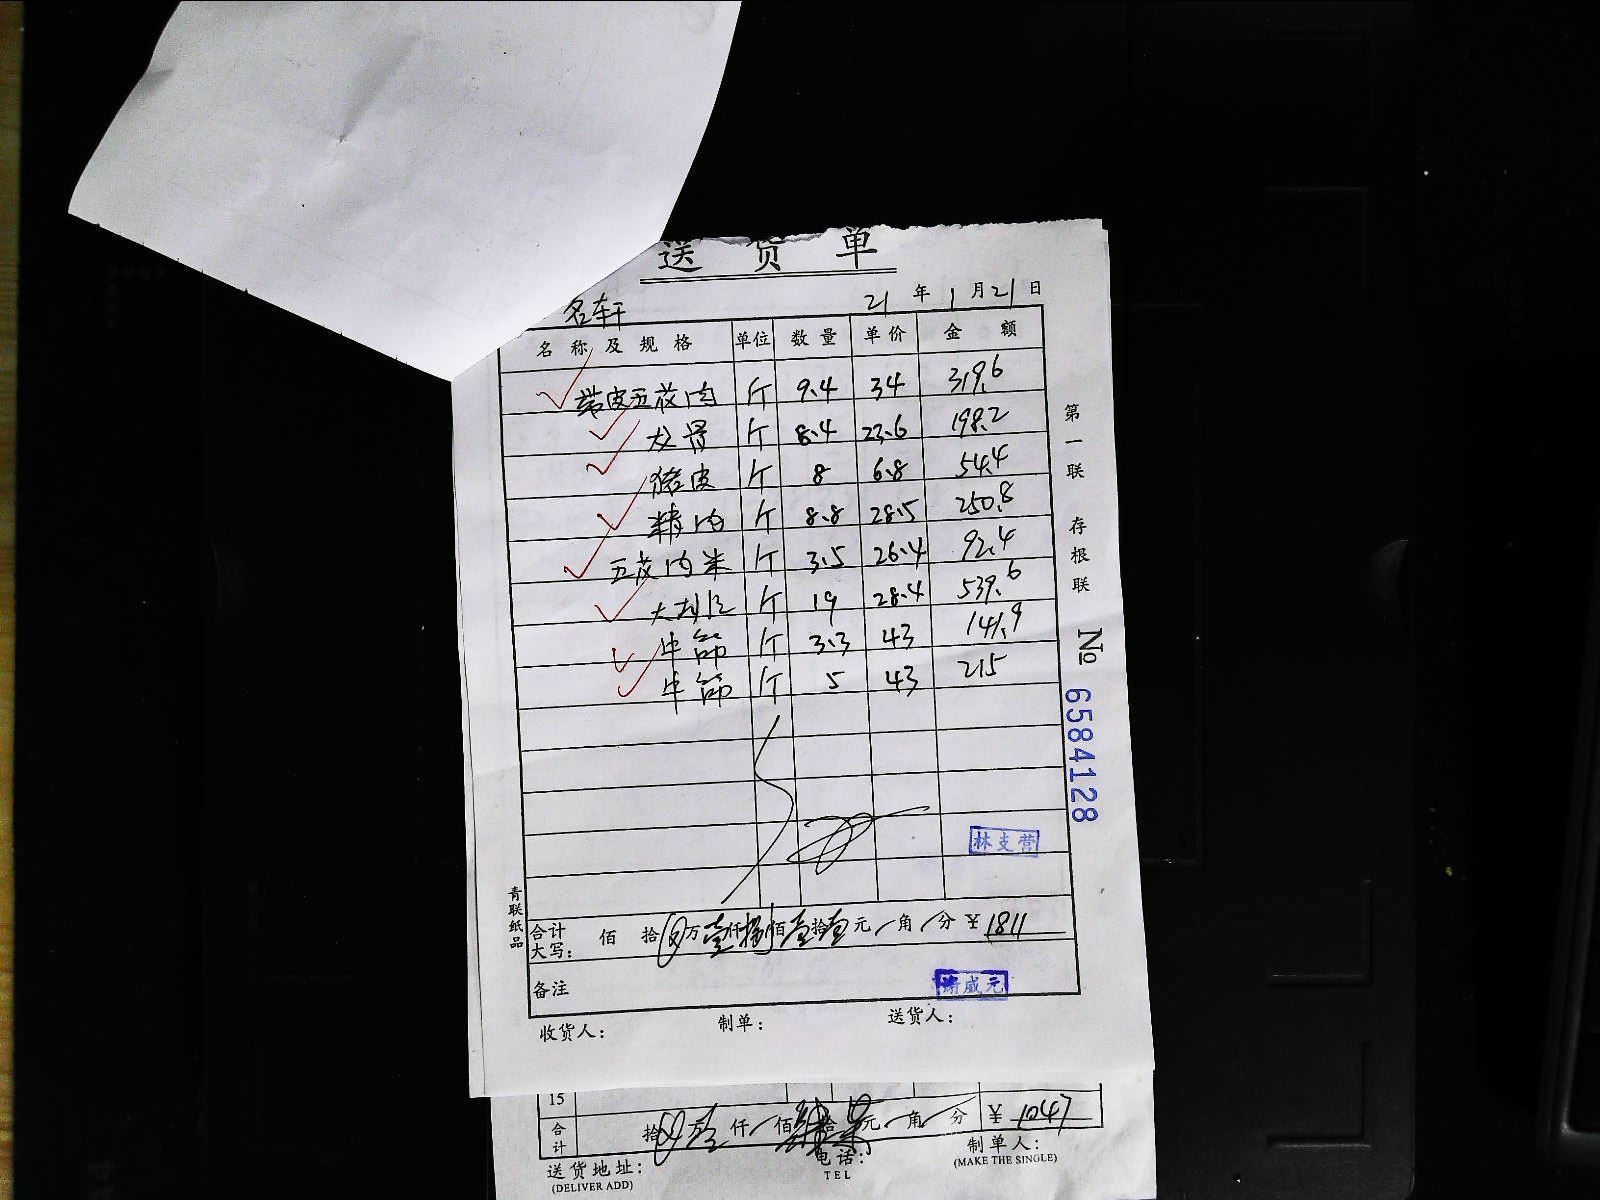 送货单
名轩 21年1月21日
名称及规格 单位 数量 单价 金额
带皮五花肉 斤 9.4 34 319.6
龙骨 斤 8.4 23.6 198.2
猪皮 斤 8 6.8 54.4
精肉 斤 8.8 28.5 250.8
五花肉米 斤 3.5 26.4 92.4
大排 斤 19 28.4 539.6
牛筋 斤 3.3 43 141.9
牛筋 斤 5 43 215
第一联 存根联
No 6584128
林支营
青联纸品
合计大写: 佰 拾 万壹仟捌佰壹拾壹元 角 分 ¥1811
备注
谢威元
收货人: 制单: 送货人:
15
合计 拾 万 仟 佰 拾 元 角 分 ¥1047
送货地址: 电话: 制单人:
(DELIVER ADD) TEL (MAKE THE SINGLE)